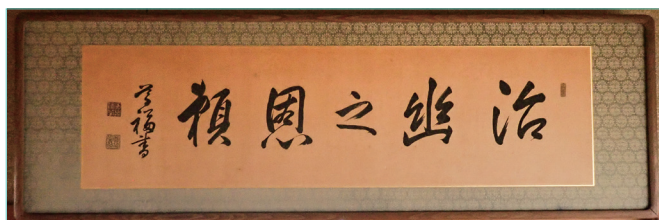 治幽之恩頼
尊福書